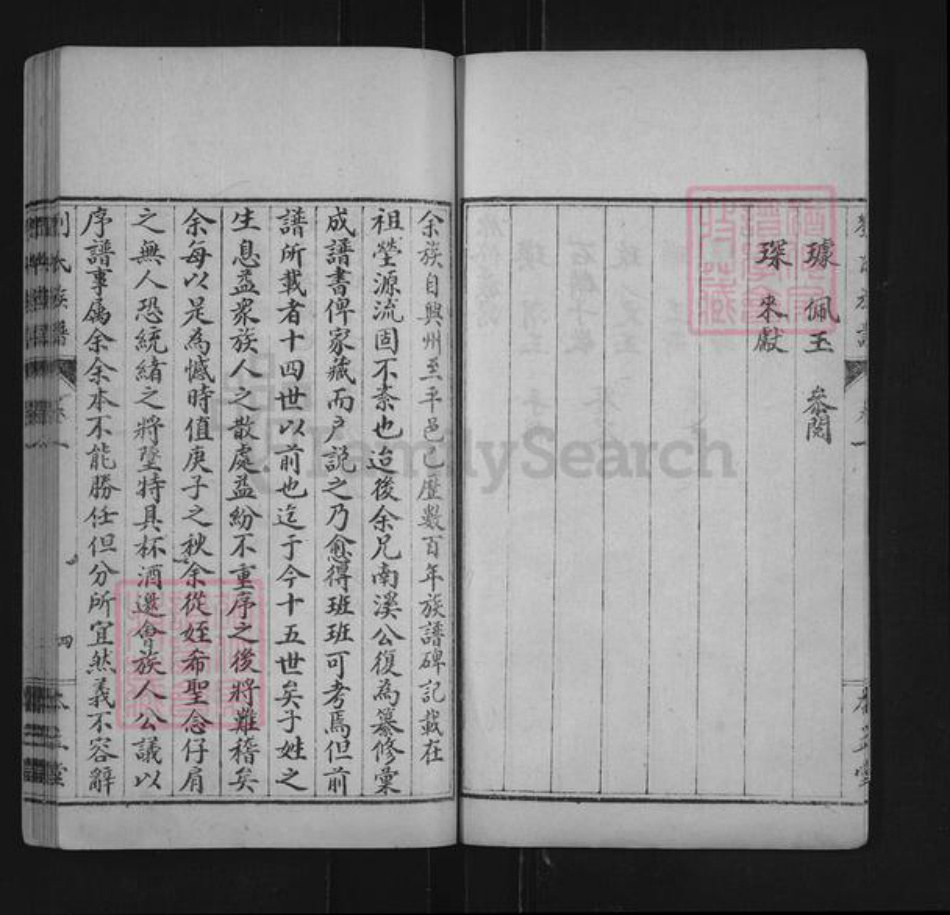 璩 佩玉 參閱
琛 來獻
余族自興州至平邑已歷數百年族譜碑記載在
祖塋源流固不紊也迨後余兄南溪公復為纂修彙
成譜書俾家藏而戶說之乃愈得班班可考焉但前
譜所載者十四世以前也迄于今十五世矣子姓之
生息益衆族人之散處益紛不重序之後將難稽矣
余每以是為憾時值庚子之秋余從姪希聖念仔肩
之無人恐統緒之將墜特具杯酒邀會族人公議以
序譜事屬余余本不能勝任但分所宜然義不容辭
劉氏族譜 卷一 四
FamilySearch